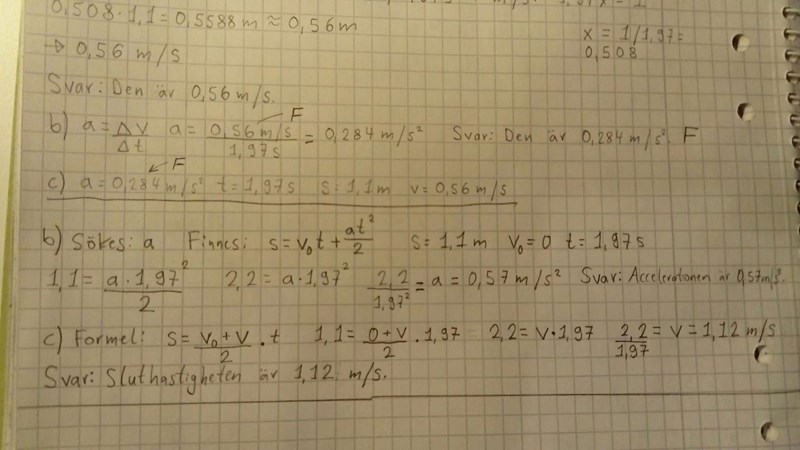 0,508·1,1=0,5588m ≈ 0,56m
x = 1/1,97=
0,508
→ 0,56 m/s
Svar: Den är 0,56 m/s.
F
b) a = ΔV/Δt a = 0,56 m/s / 1,97s = 0,284 m/s² Svar: Den är 0,284 m/s². F
F
c) a = 0,284 m/s² t = 1,97s s = 1,1m v = 0,56 m/s
b) Sökes: a Finnes: s = v₀t + at²/2 s = 1,1 m v₀ = 0 t = 1,97s
1,1 = a·1,97²/2 2,2 = a·1,97² 2,2/1,97² = a = 0,57 m/s² Svar: Accelerationen är 0,57m/s².
c) Formel: s = v₀+v/2 · t 1,1 = 0+v/2 · 1,97 2,2 = v·1,97 2,2/1,97 = v = 1,12 m/s
Svar: Sluthastigheten är 1,12 m/s.